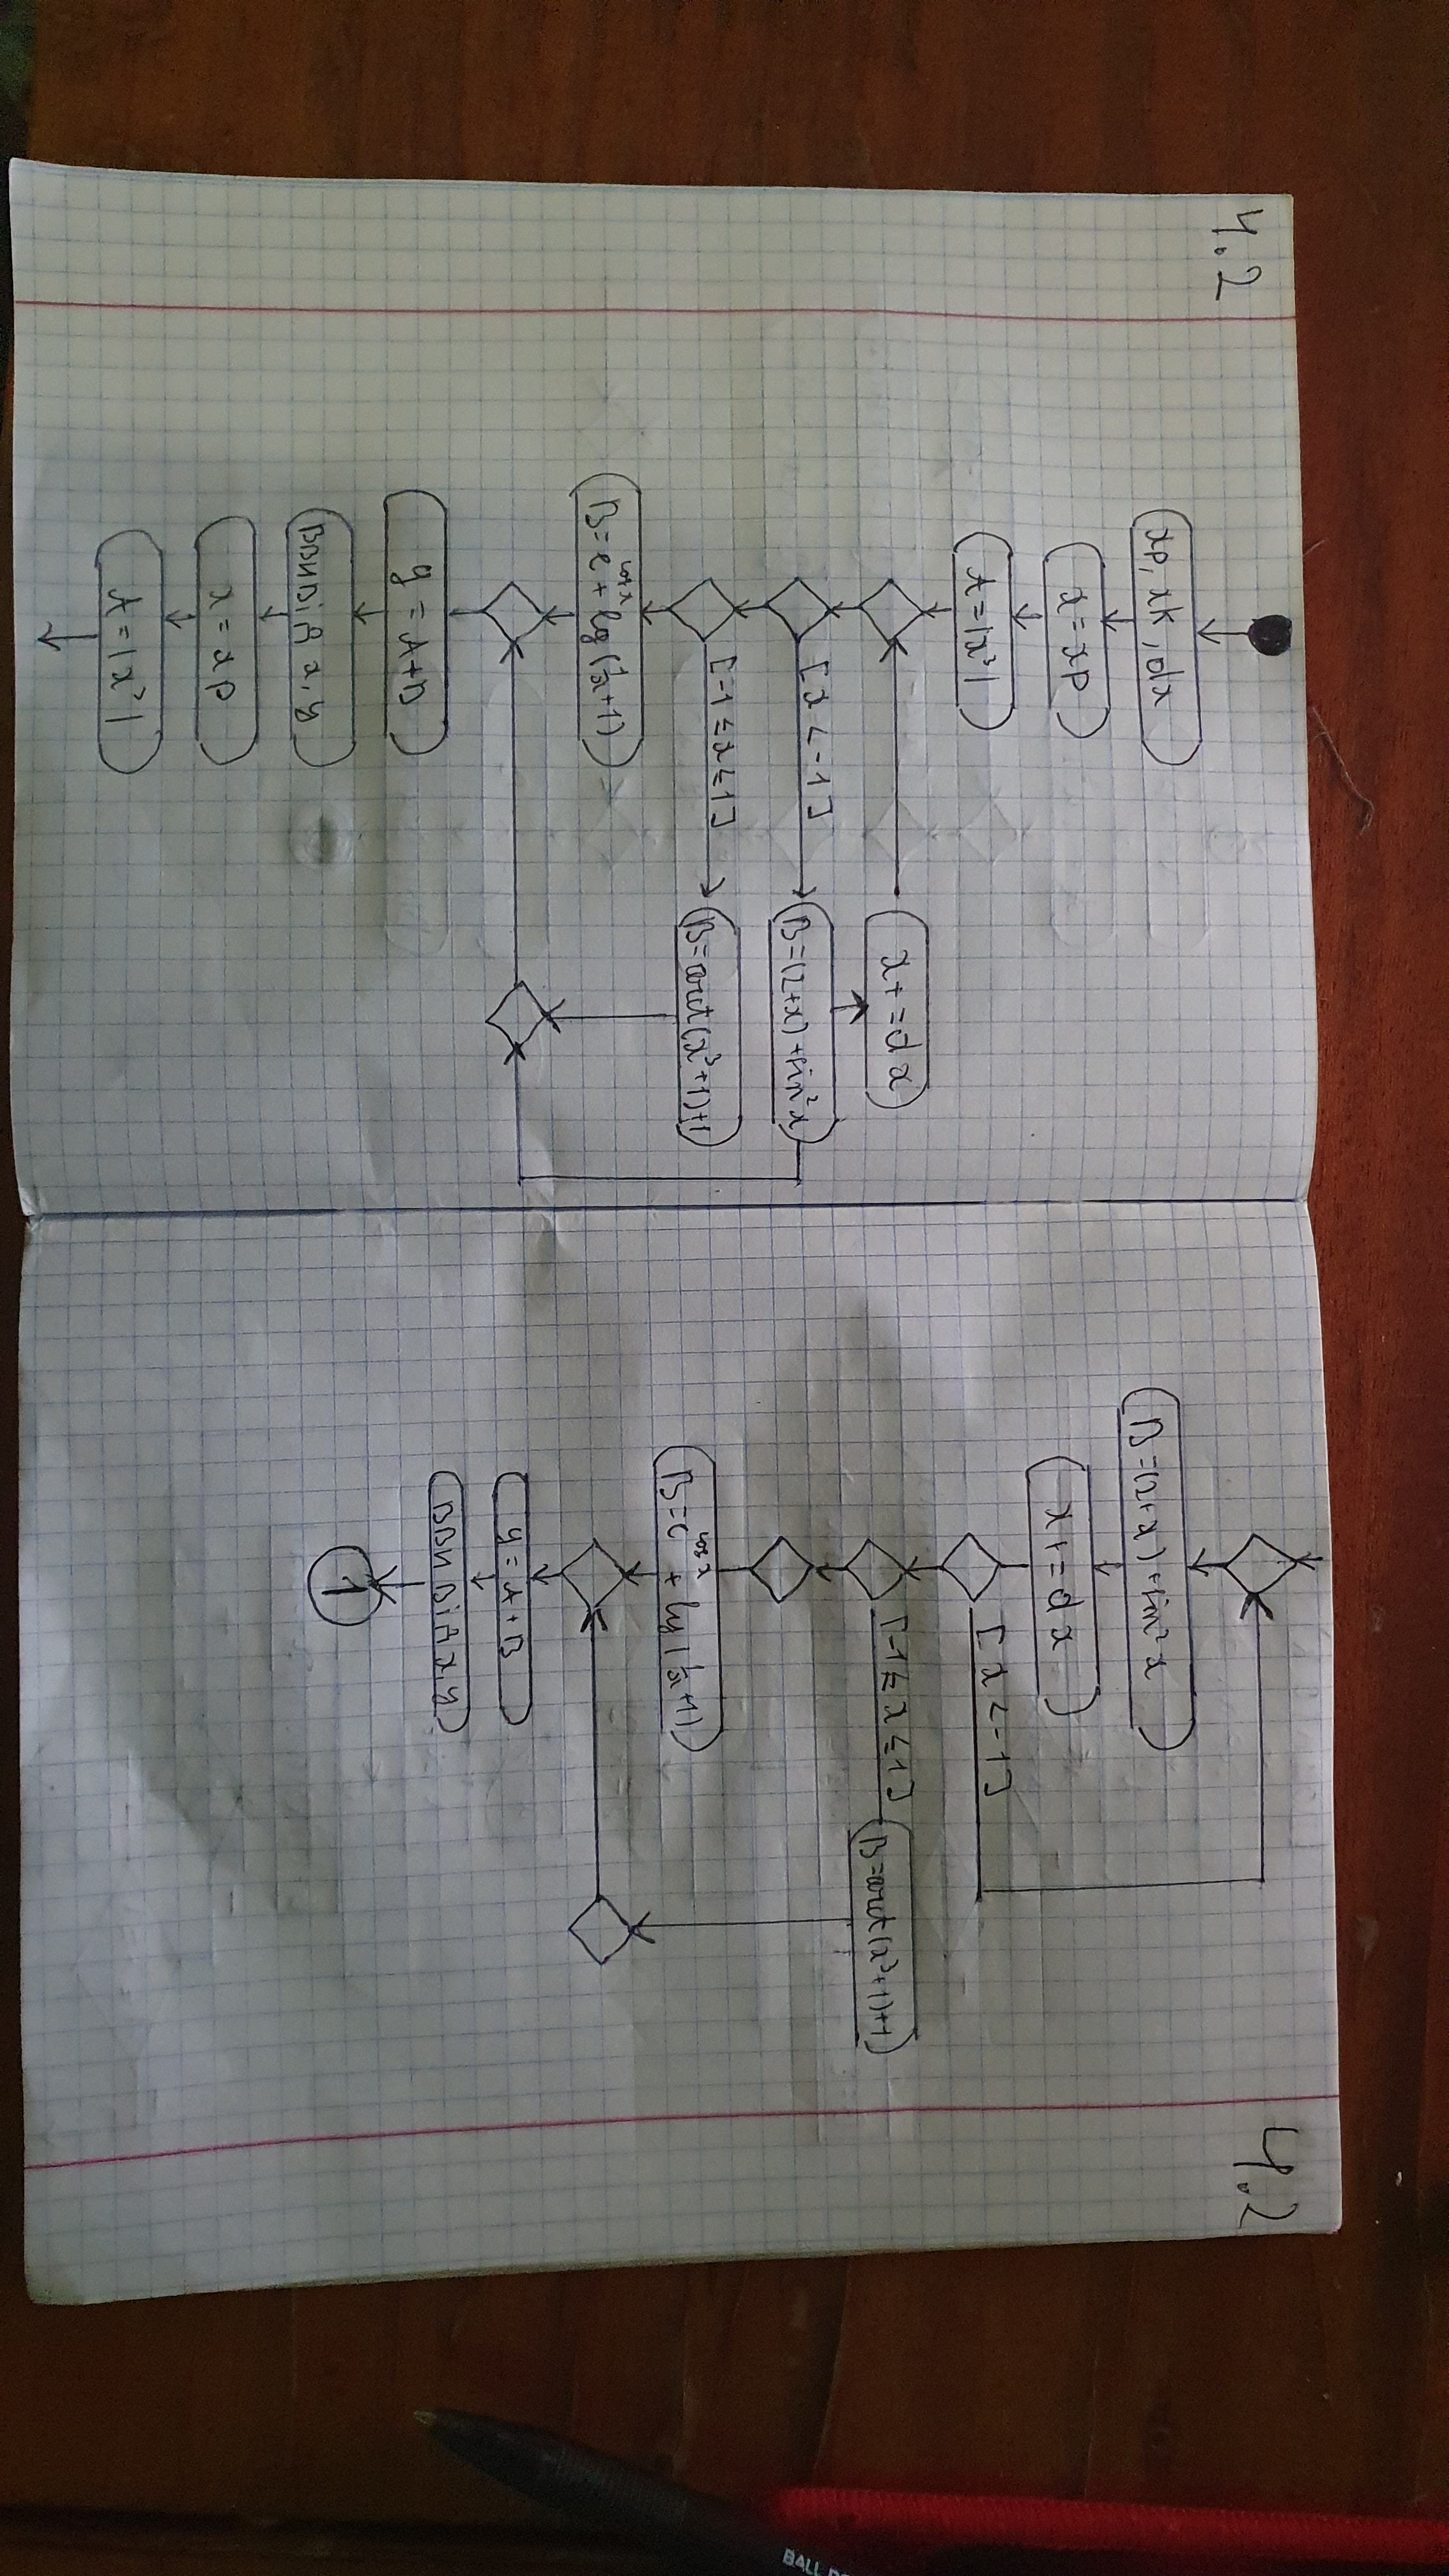 4.2
xp, xk, dx
x = xp
A = |x³|
x += dx
[x < -1]
B = (2+x) + sin²x
[-1 ≤ x ≤ 1]
B = arct(x³+1)+1
B = e^cos x + lg(1/x + 1)
y = A+B
Вивід x, y
x = xp
A = |x³|
4.2
B = (2+x) + sin²x
x += dx
[x < -1]
[-1 ≤ x ≤ 1]
B = arct(x³+1)+1
B = e^cos x + lg(1/x + 1)
y = A+B
Вивід x, y
1
BALL